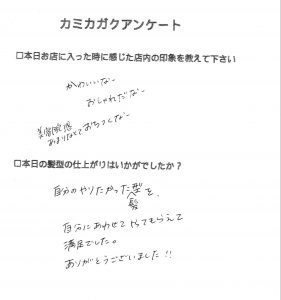 カミカガクアンケート
□本日お店に入った時に感じた店内の印象を教えて下さい
かわいいなー
おしゃれだなー
美容院感
あまりなくておちつくなー
□本日の髪型の仕上がりはいかがでしたか?
自分のやりたかった髪型を、
自分にあわせてやってもらえて
満足でした。
ありがとうございました!!